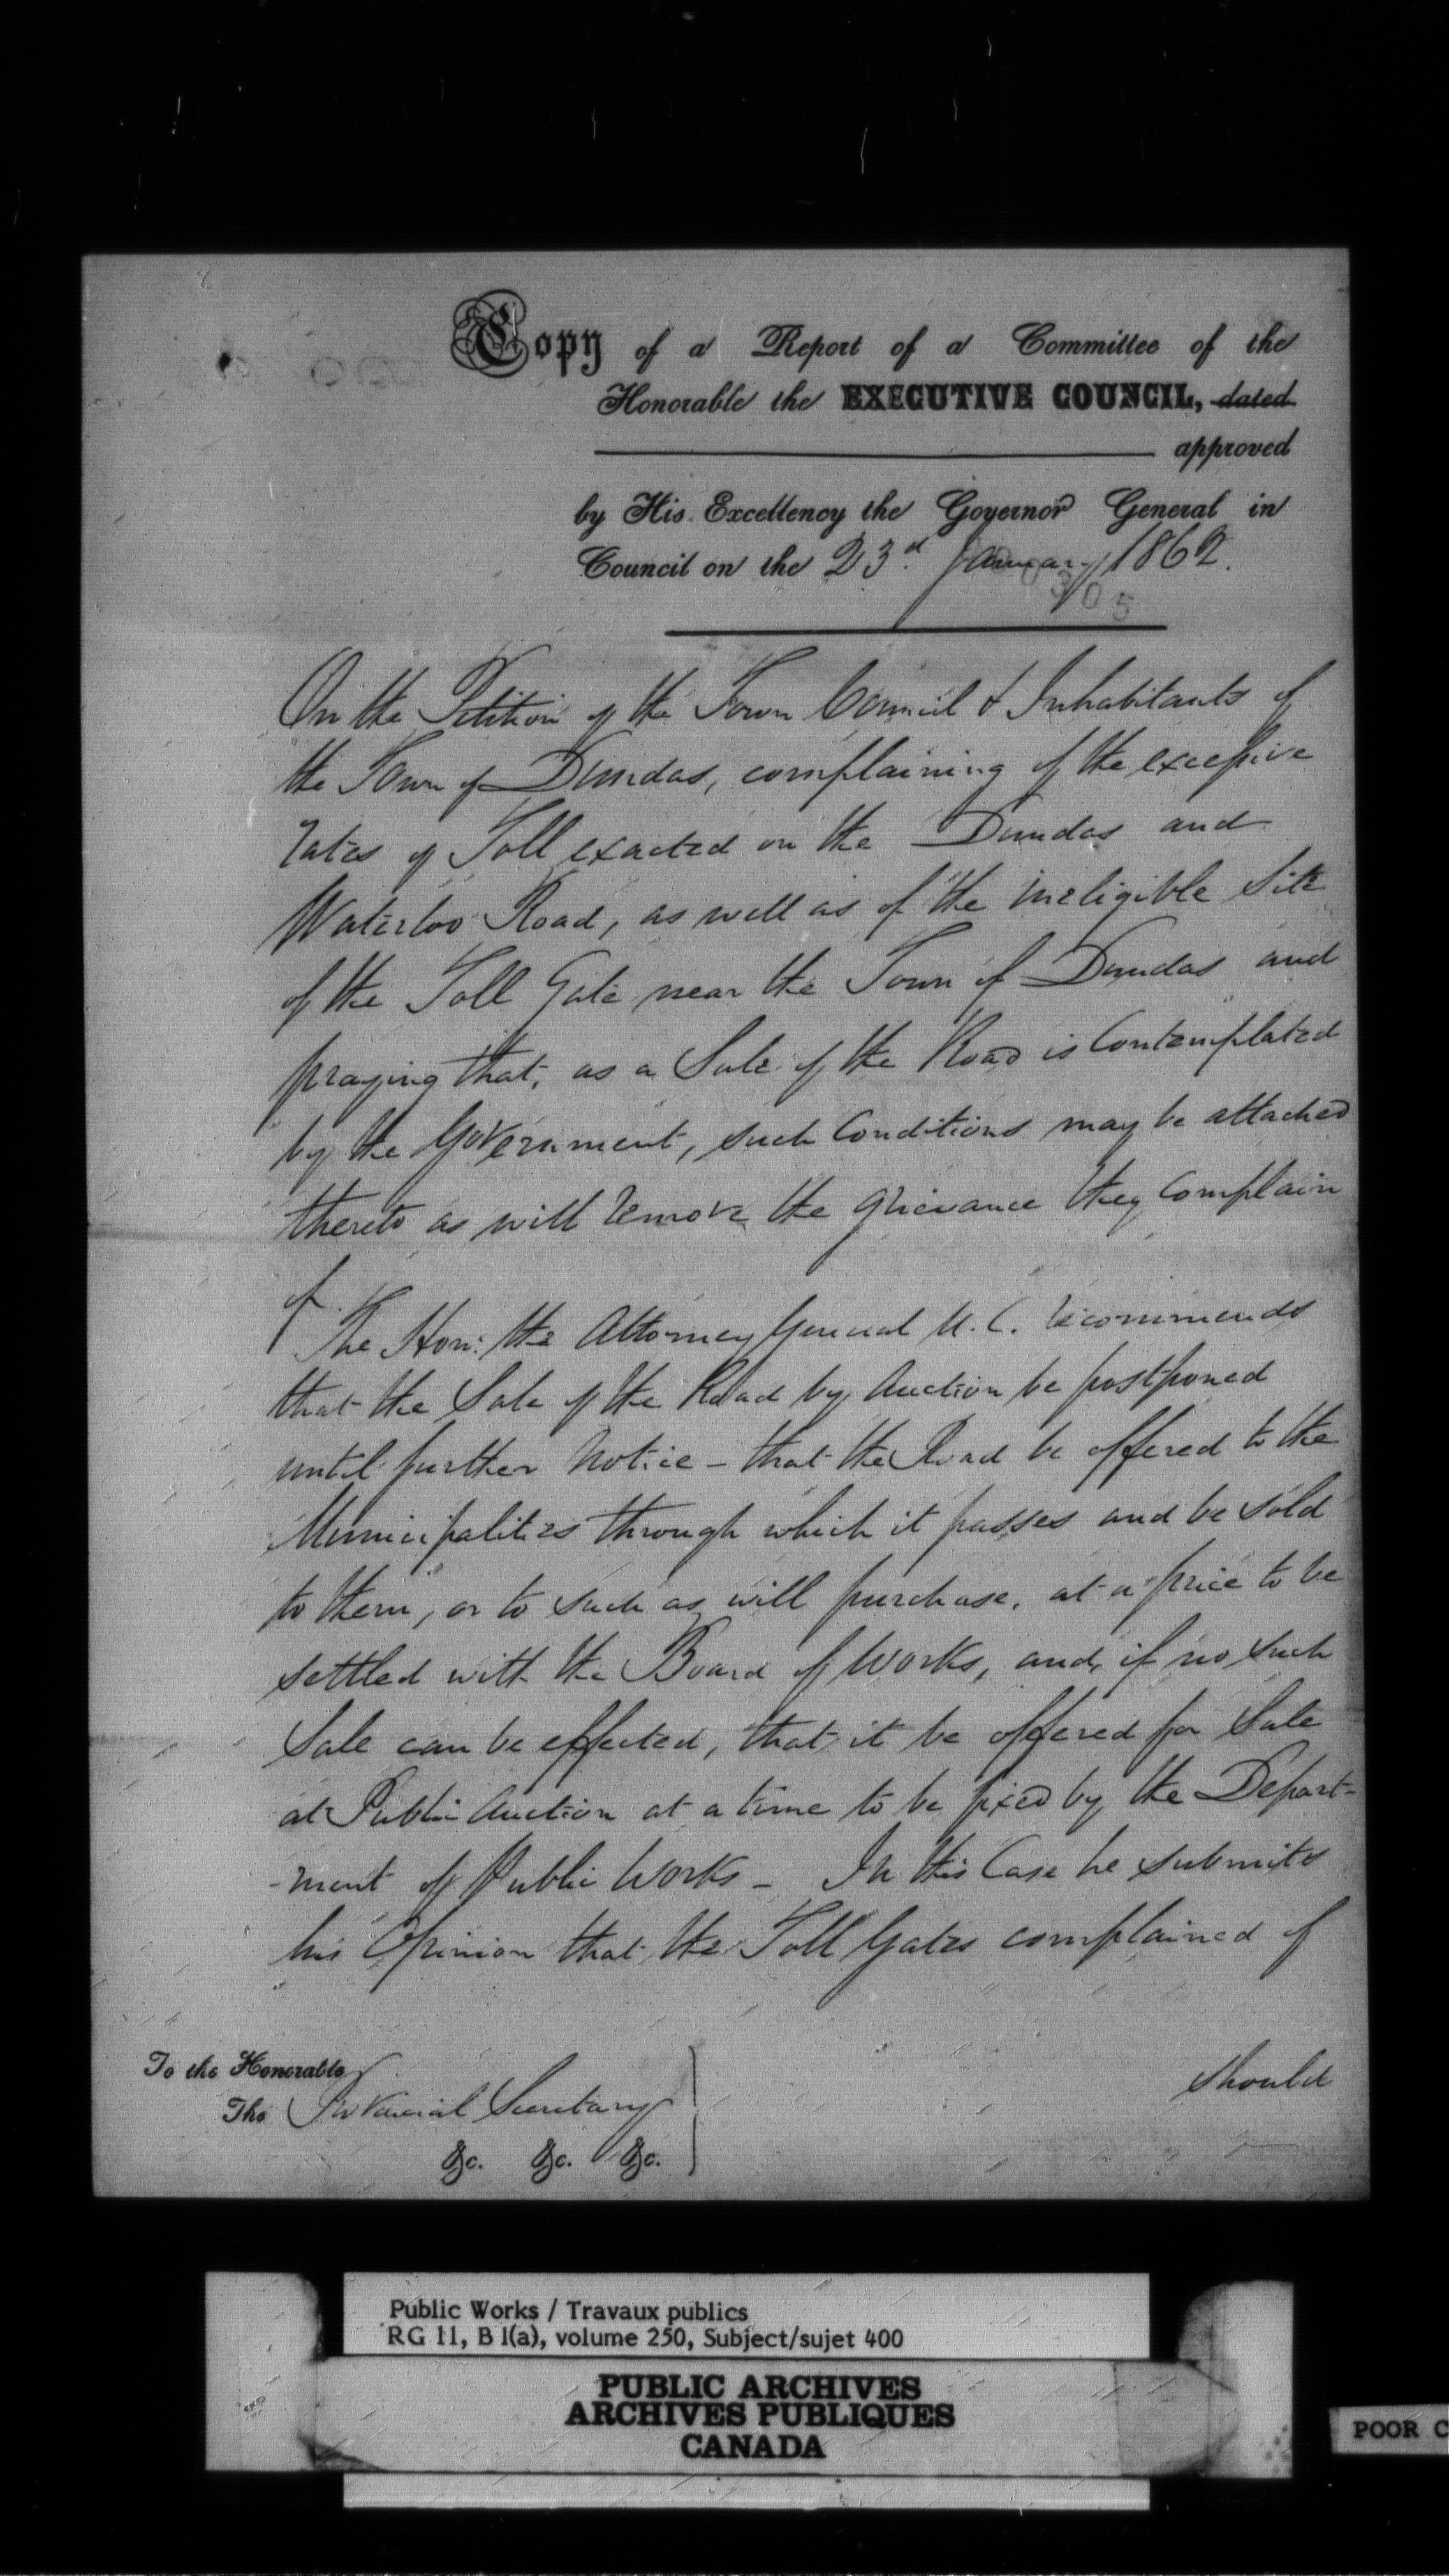 Copy of a Report of a Committee of the
Honorable the EXECUTIVE COUNCIL, dated
approved
by His Excellency the Governor General in
Council on the 23d. January 1862.
305
On the Petition of the Town Council & Inhabitants of
the Town of Dundas, complaining of the excessive
rates of Toll exacted on the Dundas and
Waterloo Road, as well as of the ineligible site
of the Toll Gate near the Town of Dundas and
praying that, as a Sale of the Road is Contemplated
by the Government, such Conditions may be attached
thereto as will remove the grievance they Complain
of.
The Hon: the Attorney General U.C. recommends
that the Sale of the Road by Auction be postponed
until further Notice - that the Road be offered to the
Municipalities through which it passes and be sold
to them, or to such as will purchase, at a price to be
settled with the Board of Works, and, if no such
Sale can be effected, that it be offered for Sale
at Public Auction at a time to be fixed by the Depart-
-ment of Public Works - In this Case he submits
his Opinion that the Toll Gates complained of
should
To the Honorable
The Provincial Secretary
&c. &c. &c.
Public Works / Travaux publics
RG 11, B 1(a), volume 250, Subject/sujet 400
PUBLIC ARCHIVES
ARCHIVES PUBLIQUES
CANADA
POOR C